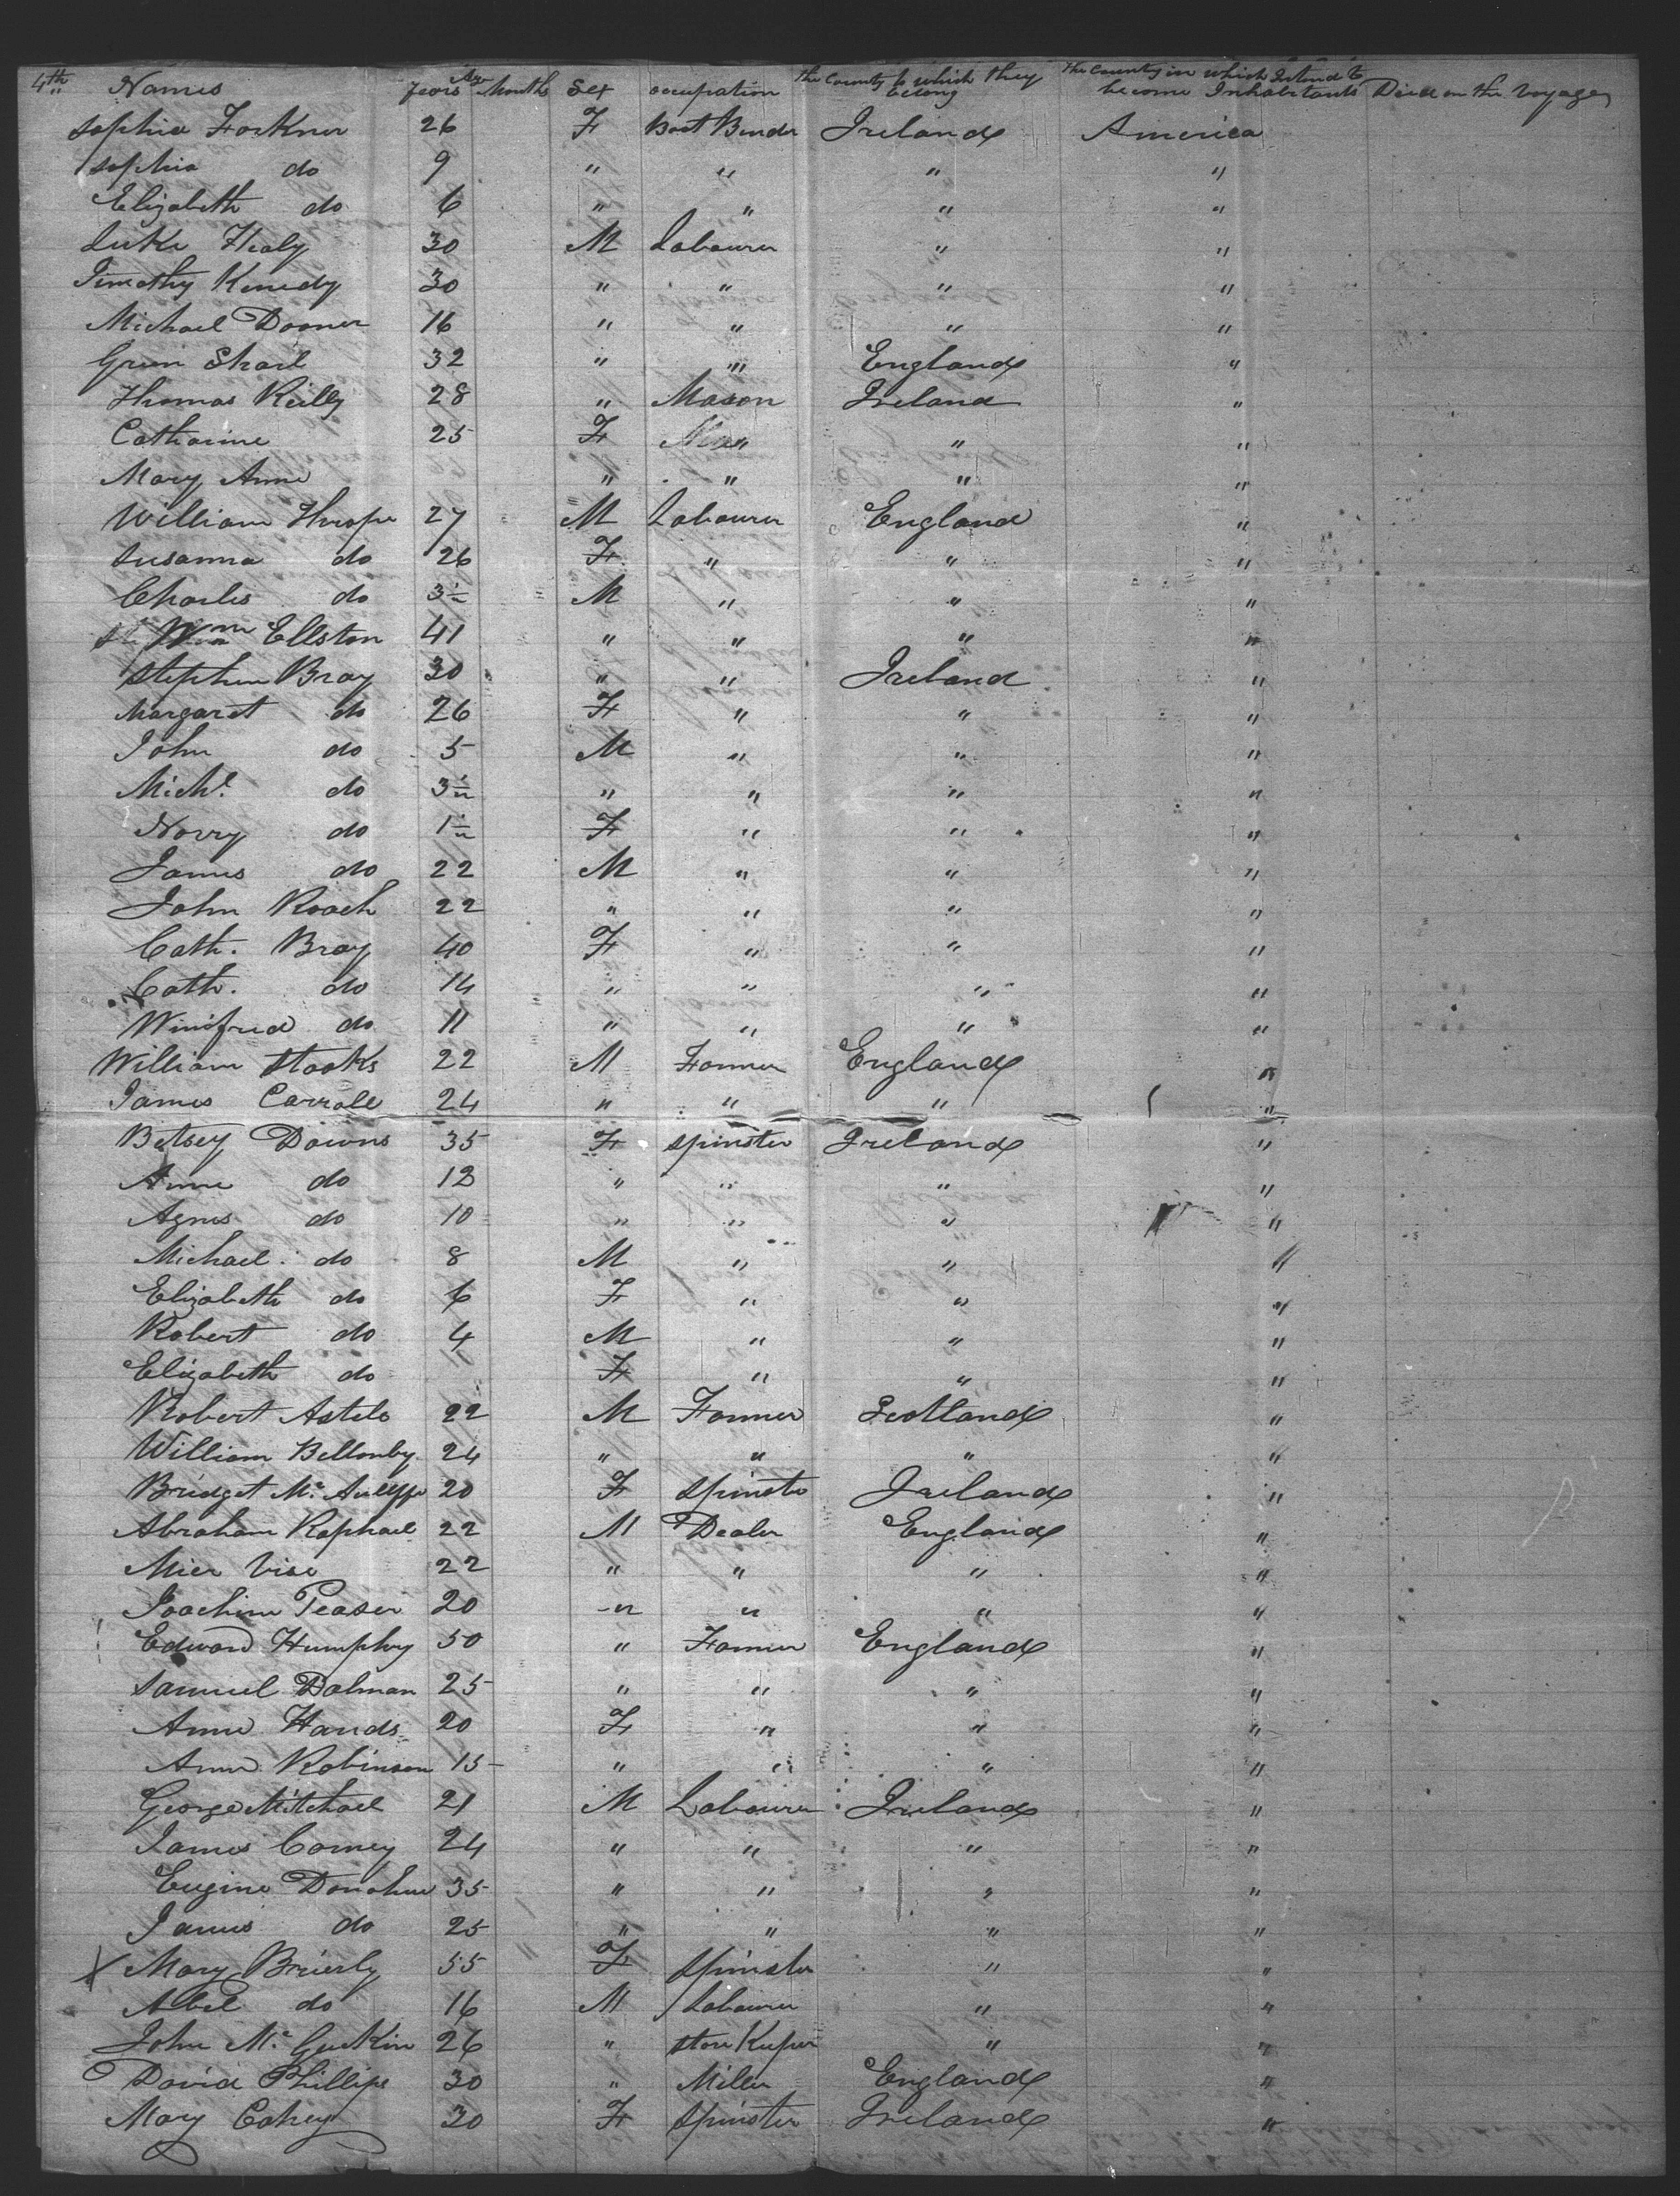 4th Names Age Years Months Sex occupation the Country to which they belong the Country in which Intend to become Inhabitants Died on the Voyage
Sophia Forkner 26 F Boot Binder Ireland America
Sophia do 9 " " " "
Elizabeth do 6 " " " "
Luke Healy 30 M Labourer " "
Timothy Kenedy 30 " " " "
Michael Dooner 16 " " " "
32 " " England "
Thomas Reilly 28 " Mason Ireland "
Catharine 25 F " " "
Mary Anne " " " "
William 27 M Labourer England "
Susanna do 26 F " " "
Charles do 3 M " " "
Wm Ellston 41 " " " "
Stephen Bray 30 " " Ireland "
Margaret do 26 F " " "
John do 5 M " " "
Michl. do 3 " " " "
Norry do 1 F " " "
James do 22 M " " "
John Roach 22 " " " "
Cath. Bray 40 F " " "
Cath. do 14 " " " "
Winifred do 11 " " " "
William Stooks 22 M Farmer England "
James Carroll 24 " " " "
Betsey Downs 35 F Spinster Ireland "
Anne do 12 " " " "
Agnes do 10 " " " "
Michael do 8 M " " "
Elizabeth do 6 F " " "
Robert do 4 M " " "
Elizabeth do F " " "
Robert 22 M Farmer Scotland "
William Bellonby 24 " " " "
Bridget Mc 20 F Spinster Ireland "
Abraham Raphael 22 M Dealer England "
Mier 22 " " " "
Joachim Peaser 20 " " " "
Edward Humphry 50 " Farmer England "
Samuel Dolman 25 " " " "
Anne Hands 20 F " " "
Anne Robinson 15 " " " "
George Mitchael 21 M Labourer Ireland "
James Comey 24 " " " "
Eugine Donohue 35 " " " "
James do 25 " " " "
X Mary Brierly 55 F Spinster " "
Abel do 16 M Labourer " "
John Mc Guckin 26 " Store Keeper " "
David Phillips 30 " Miller England "
Mary Cohey 30 F Spinster Ireland "